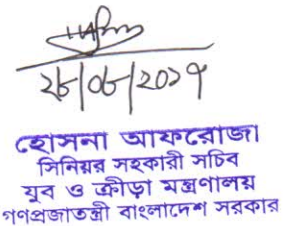 ২৮/০৮/২০১৭
হোসনা আফরোজা
সিনিয়র সহকারী সচিব
যুব ও ক্রীড়া মন্ত্রণালয়
গণপ্রজাতন্ত্রী বাংলাদেশ সরকার